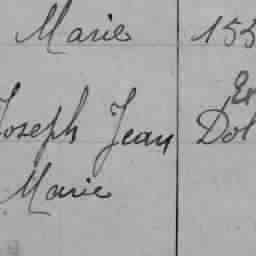 Marie 155
Er
Joseph Jean Dol
Marie